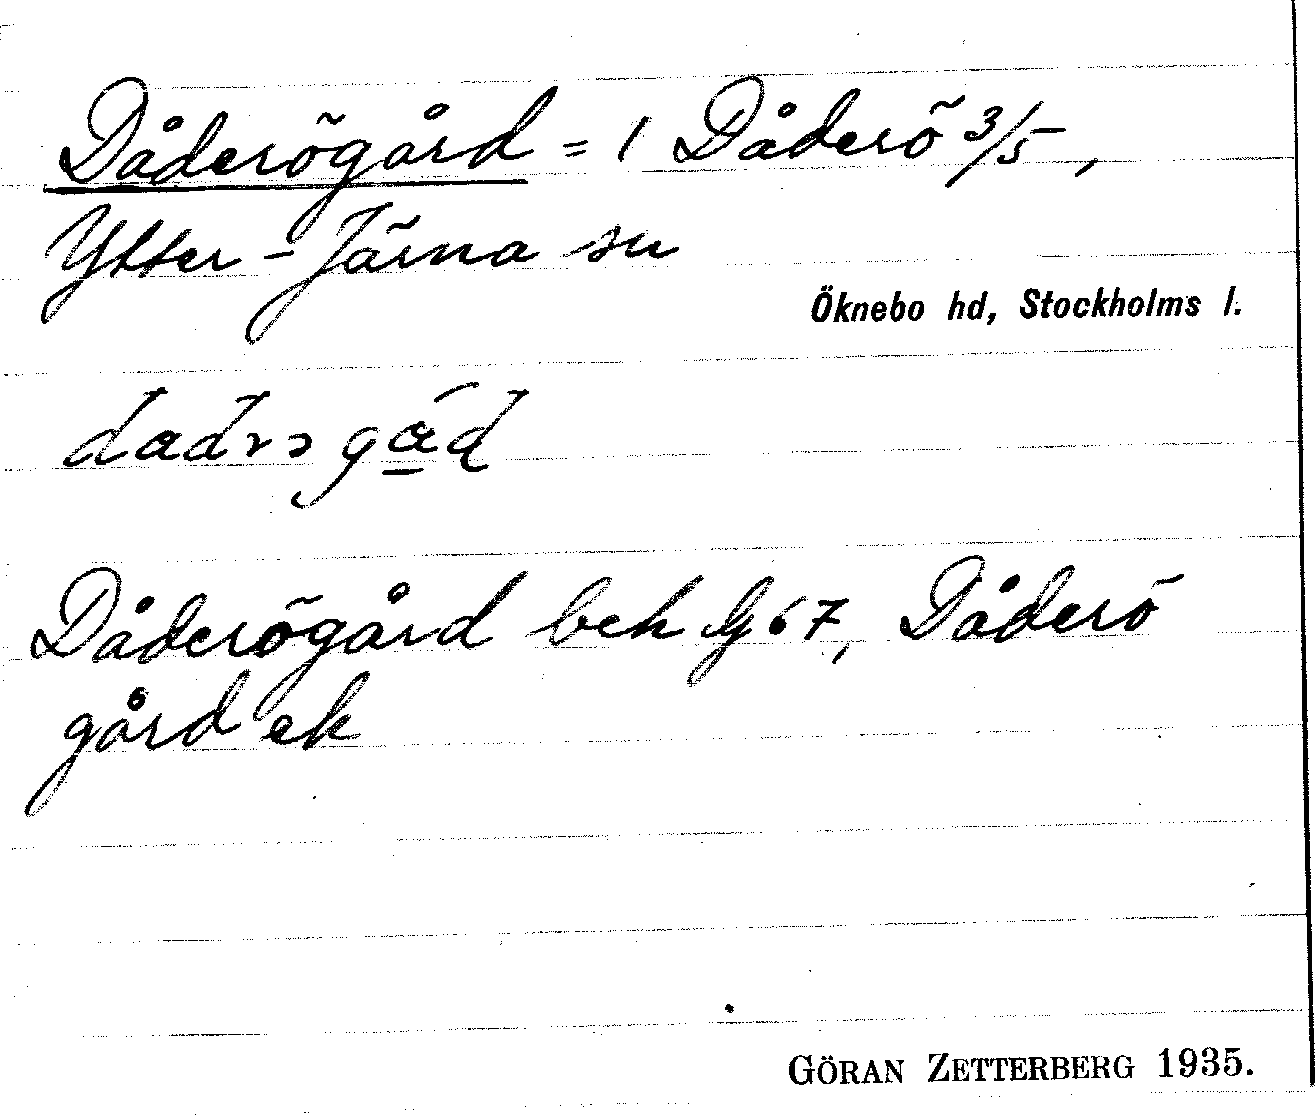 Dåderögård = 1 Dåderö 3/5,
Ytter-Järna sn
Öknebo hd, Stockholms l.
Dåderögård beh 67, Dåderö
gård ek
GÖRAN ZETTERBERG 1935.